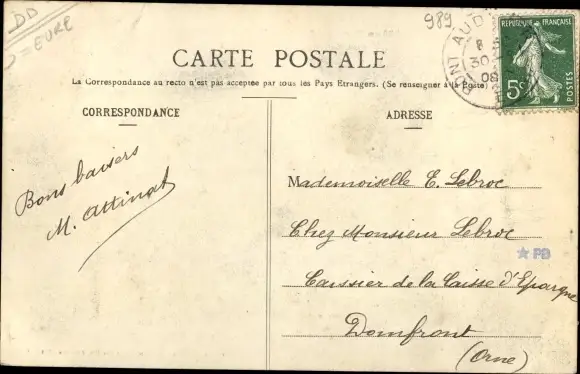 DD
= EURE
989
PONT AUD
30
08
RÉPUBLIQUE FRANÇAISE
5c
POSTES
CARTE POSTALE
La Correspondance au recto n'est pas acceptée par tous les Pays Etrangers. (Se renseigner à la Poste)
CORRESPONDANCE
ADRESSE
Bons baisers
M. Attinat
Mademoiselle E. Lebroc
Chez Monsieur Lebroc
PB
Caissier de la Caisse d'Epargne
Domfront
(Orne)